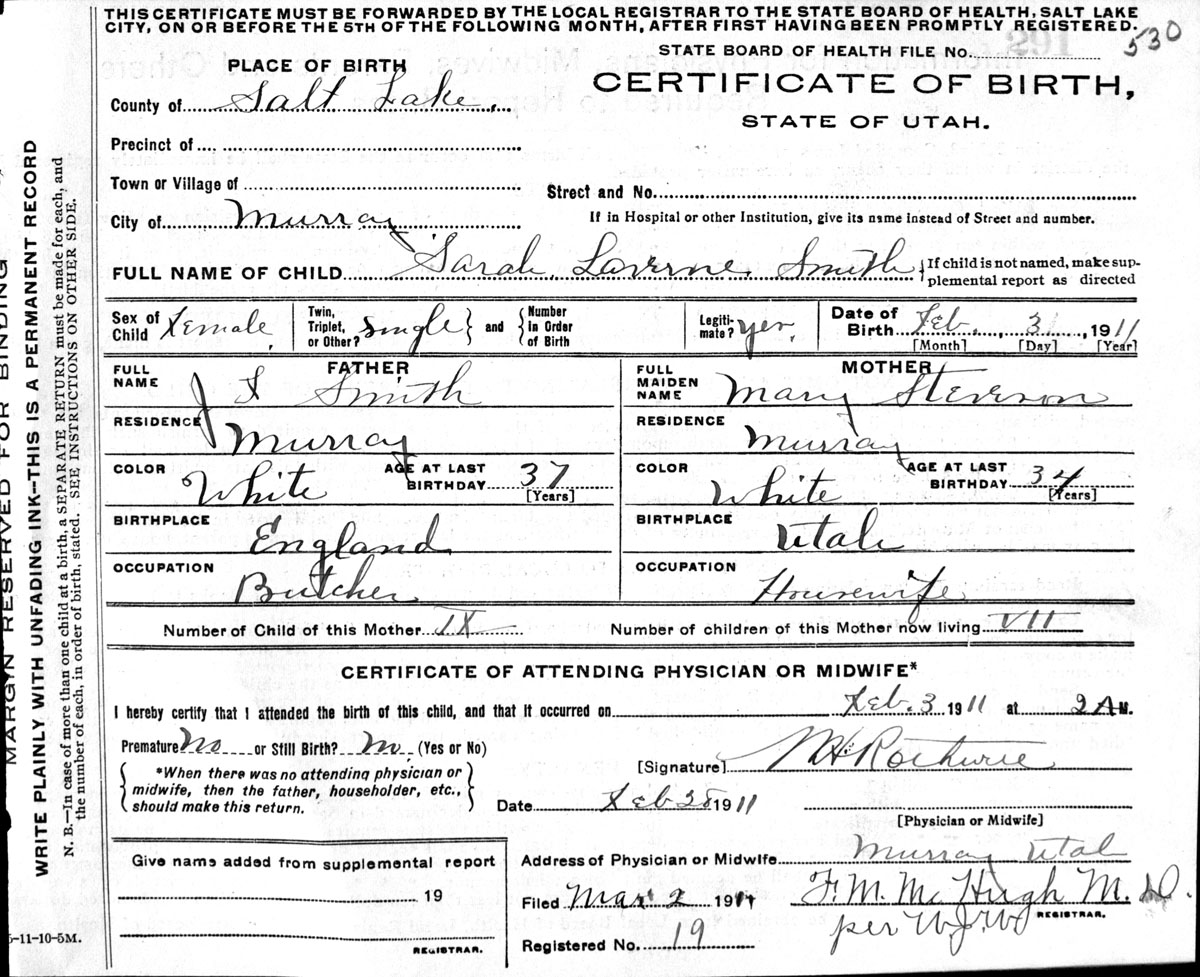 THIS CERTIFICATE MUST BE FORWARDED BY THE LOCAL REGISTRAR TO THE STATE BOARD OF HEALTH, SALT LAKE
CITY, ON OR BEFORE THE 5TH OF THE FOLLOWING MONTH, AFTER FIRST HAVING BEEN PROMPTLY REGISTERED.
STATE BOARD OF HEALTH FILE No. 291 530
PLACE OF BIRTH
CERTIFICATE OF BIRTH,
County of Salt Lake,
STATE OF UTAH.
Precinct of
Town or Village of
Street and No.
City of Murray
If in Hospital or other Institution, give its name instead of Street and number.
FULL NAME OF CHILD Sarah Laverne Smith { If child is not named, make sup-
plemental report as directed
Sex of Child Female, Twin, Triplet, or Other? single } and { Number in Order of Birth Legiti-mate? yes, Date of Birth Feb, 3, 1911
[Month] [Day] [Year]
FATHER
FULL NAME J S Smith
RESIDENCE Murray
COLOR White AGE AT LAST BIRTHDAY 37 [Years]
BIRTHPLACE England
OCCUPATION Butcher
MOTHER
FULL MAIDEN NAME Mary Stevenson
RESIDENCE Murray
COLOR White AGE AT LAST BIRTHDAY 34 [Years]
BIRTHPLACE Utah
OCCUPATION Housewife
Number of Child of this Mother IX Number of children of this Mother now living VII
CERTIFICATE OF ATTENDING PHYSICIAN OR MIDWIFE*
I hereby certify that I attended the birth of this child, and that it occurred on Feb. 3 1911 at 2 A M.
Premature No or Still Birth? No (Yes or No)
{ *When there was no attending physician or
midwife, then the father, householder, etc.,
should make this return. }
[Signature]
Date Feb 28 1911
[Physician or Midwife]
Give name added from supplemental report
19
REGISTRAR.
Address of Physician or Midwife Murray Utah
Filed Mar 2 1911 F. M. McHugh M.D.
per W.J.W. REGISTRAR.
Registered No. 19
5-11-10-5M.
MARGIN RESERVED FOR BINDING
WRITE PLAINLY WITH UNFADING INK—THIS IS A PERMANENT RECORD
N. B.—In case of more than one child at a birth, a SEPARATE RETURN must be made for each, and
the number of each, in order of birth, stated. SEE INSTRUCTIONS ON OTHER SIDE.